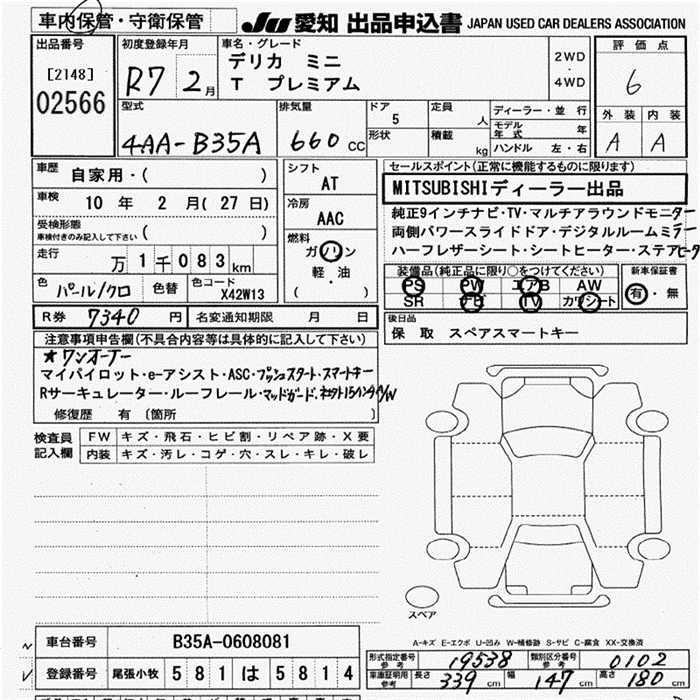 車内保管・守衛保管
JU 愛知 出品申込書 JAPAN USED CAR DEALERS ASSOCIATION
出品番号
[2148]
02566
初度登録年月
R7 2月
車名・グレード
デリカ ミニ
T プレミアム
2WD
・
4WD
評価点
6
外装 内装
A A
型式
4AA-B35A
排気量
660 CC
ドア
5
形状
定員
人
積載
kg
ディーラー・並行
モデル年式 年
ハンドル 左・右
車歴
自家用・( )
車検
10 年 2 月(27日)
受検形態
車検付きのみ記入して下さい ( )
走行
万1千083km
色
パール/クロ
色替
色コード
X42W13
シフト
AT
冷房
AAC
燃料
ガソリン
軽・油
( )
セールスポイント(正常に機能するものに限ります)
MITSUBISHIディーラー出品
純正9インチナビ・TV・マルチアラウンドモニター
両側パワースライドドア・デジタルルームミラー
ハーフレザーシート・シートヒーター・ステアヒータ
装備品(純正品に限り○をつけてください)
PS PW エアB AW
SR ナビ TV カワシート
新車保証書
有・無
R券 7340 円
名変通知期限 月 日
後日品
保 取 スペアスマートキー
注意事項申告欄(不具合内容等は具体的に記入して下さい)
★ワンオーナー
マイパイロット・e-アシスト・ASC・プッシュスタート・スマートキー
Rサーキュレーター・ルーフレール・マッドガード・
修復歴 有 〔箇所 〕
検査員記入欄
FW キズ・飛石・ヒビ割・リペア跡・X要
内装 キズ・汚レ・コゲ・穴・スレ・キレ・破レ
スペア
A-キズ E-エクボ U-凹み W-補修跡 S-サビ C-腐食 XX-交換済
車台番号 B35A-0608081
登録番号 尾張小牧 581 は 5814
形式指定番号 参考 19538
類別区分番号 参考 0102
車庫証明用 参考 長さ 339 cm 幅 147 cm 高さ 180 cm